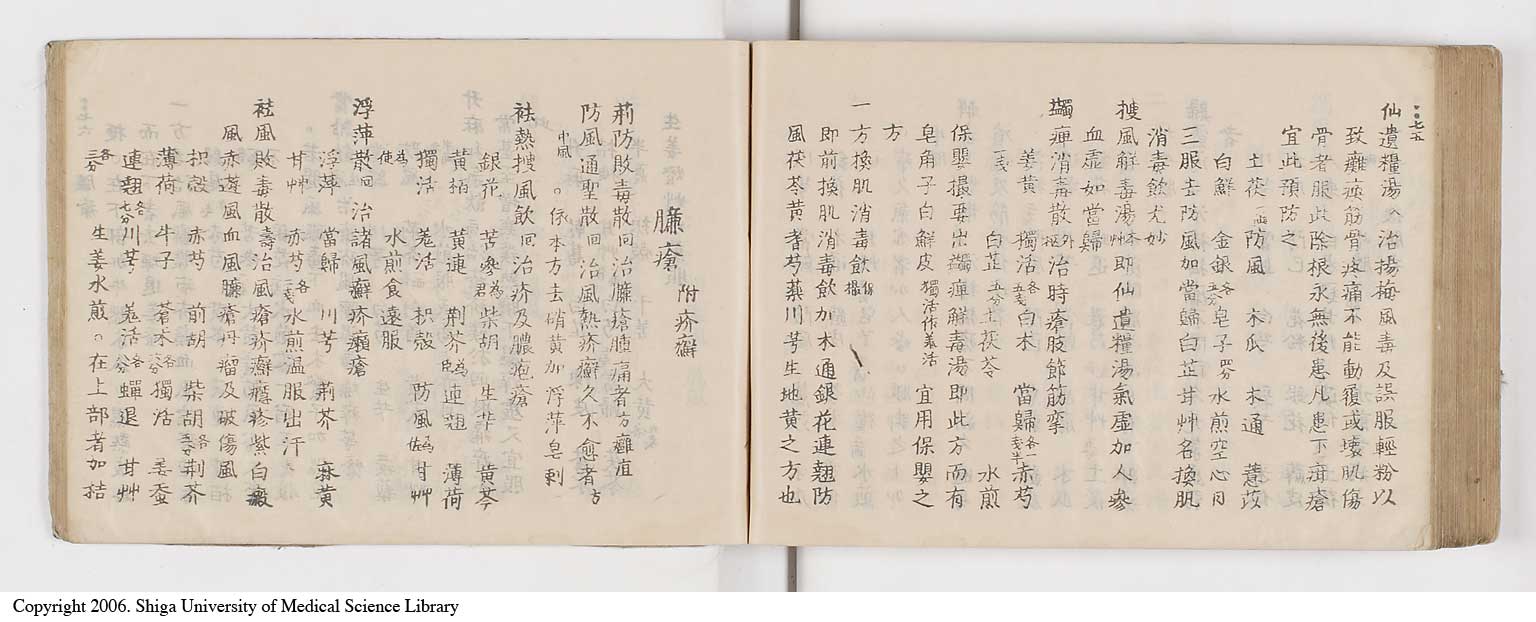 七五
仙遺糧湯 治揚梅風毒及誤服輕粉以
致癱瘓筋骨疼痛不能動履或壞肌傷
骨者服此除根永無後患凡患下疳瘡
宜此預防之
土茯一両 防風 木瓜 木通 薏苡
白鮮 金銀各五分 皂子四分 水煎空心日
三服去防風加當歸白芷甘艸各換肌
消毒飲尤妙
搜風解毒湯本艸即仙遺糧湯氣虚加人參
血虚如當歸
蠲痺消毒散外枢治時瘡肢節筋攣
姜黄 獨活各五戔白朮 當歸各一戔半赤芍
一戔 白芷五分土茯苓 水煎
保嬰撮要出蠲痺解毒湯即此方而有
皂角子白鮮皮獨活作羗活 宜用保嬰之
方
一方換肌消毒飲保嬰撮
即前換肌消毒飲加木通銀花連翹防
風茯苓黄耆芍藥川芎生地黄之方也
臁瘡 附疥癬
荊防敗毒散回治臁瘡腫痛者方癰疽
防風通聖散回治風熱疥癬久不愈者方
中風 。係本方去硝黄加浮萍皂刺
祛熱搜風飲回治疥及膿疱瘡
銀花 苦參為君柴胡 生芐 黄芩
黄栢 黄連 荆芥為臣連翹 薄荷
獨活 羗活 枳殻 防風為佐甘艸
為使 水煎食遠服
浮萍散回 治諸風癬疥癩瘡
浮萍 當歸 川芎 荊芥 麻黄
甘艸 赤芍各二戔水煎温服出汗
祛風敗毒散壽治風瘡疥癬癮疹紫白癜
風赤遊風血風臁瘡丹瘤及破傷風
枳殻 赤芍 前胡 柴胡各五分荆芥
薄荷 牛子 蒼朮各六分獨活 姜蚕
連翹各七分川芎 羗活各八分蟬退 甘艸
各三分 生姜水煎。在上部者加桔